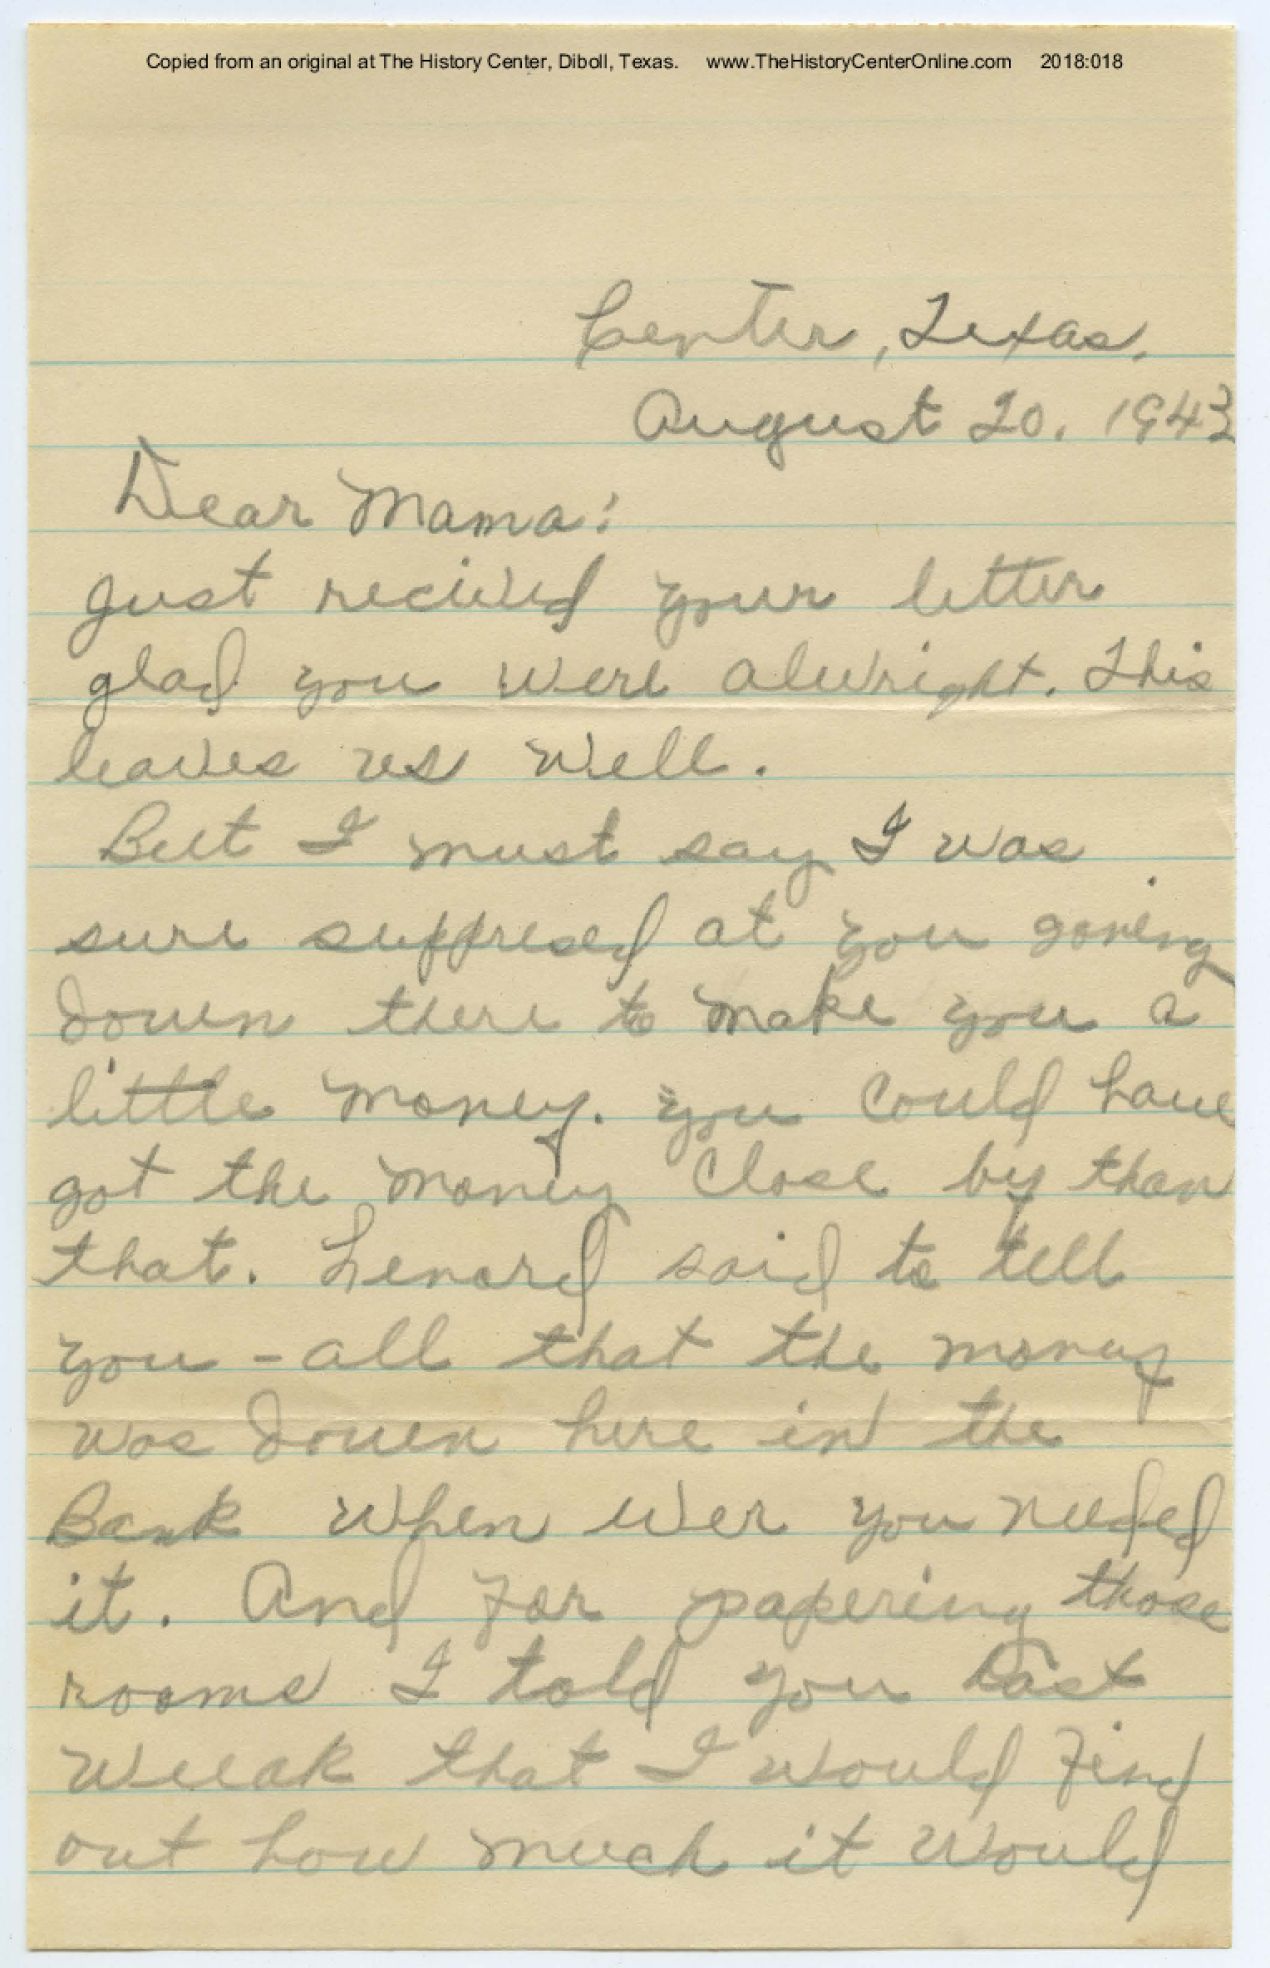 Copied from an original at The History Center, Diboll, Texas. www.TheHistoryCenterOnline.com 2018:018
Center, Texas.
August 20, 1943
Dear Mama:
Just recived your letter
glad you were alwright. This
leaves us well.
But I must say I was
sure suppresed at you goneing
down there to make you a
little money. you could have
got the money close by than
that. Lenard said to tell
you-all that the money
was down here in the
Bank when ever you needed
it. And for papering those
rooms I told you last
weeak that I would find
out how much it would